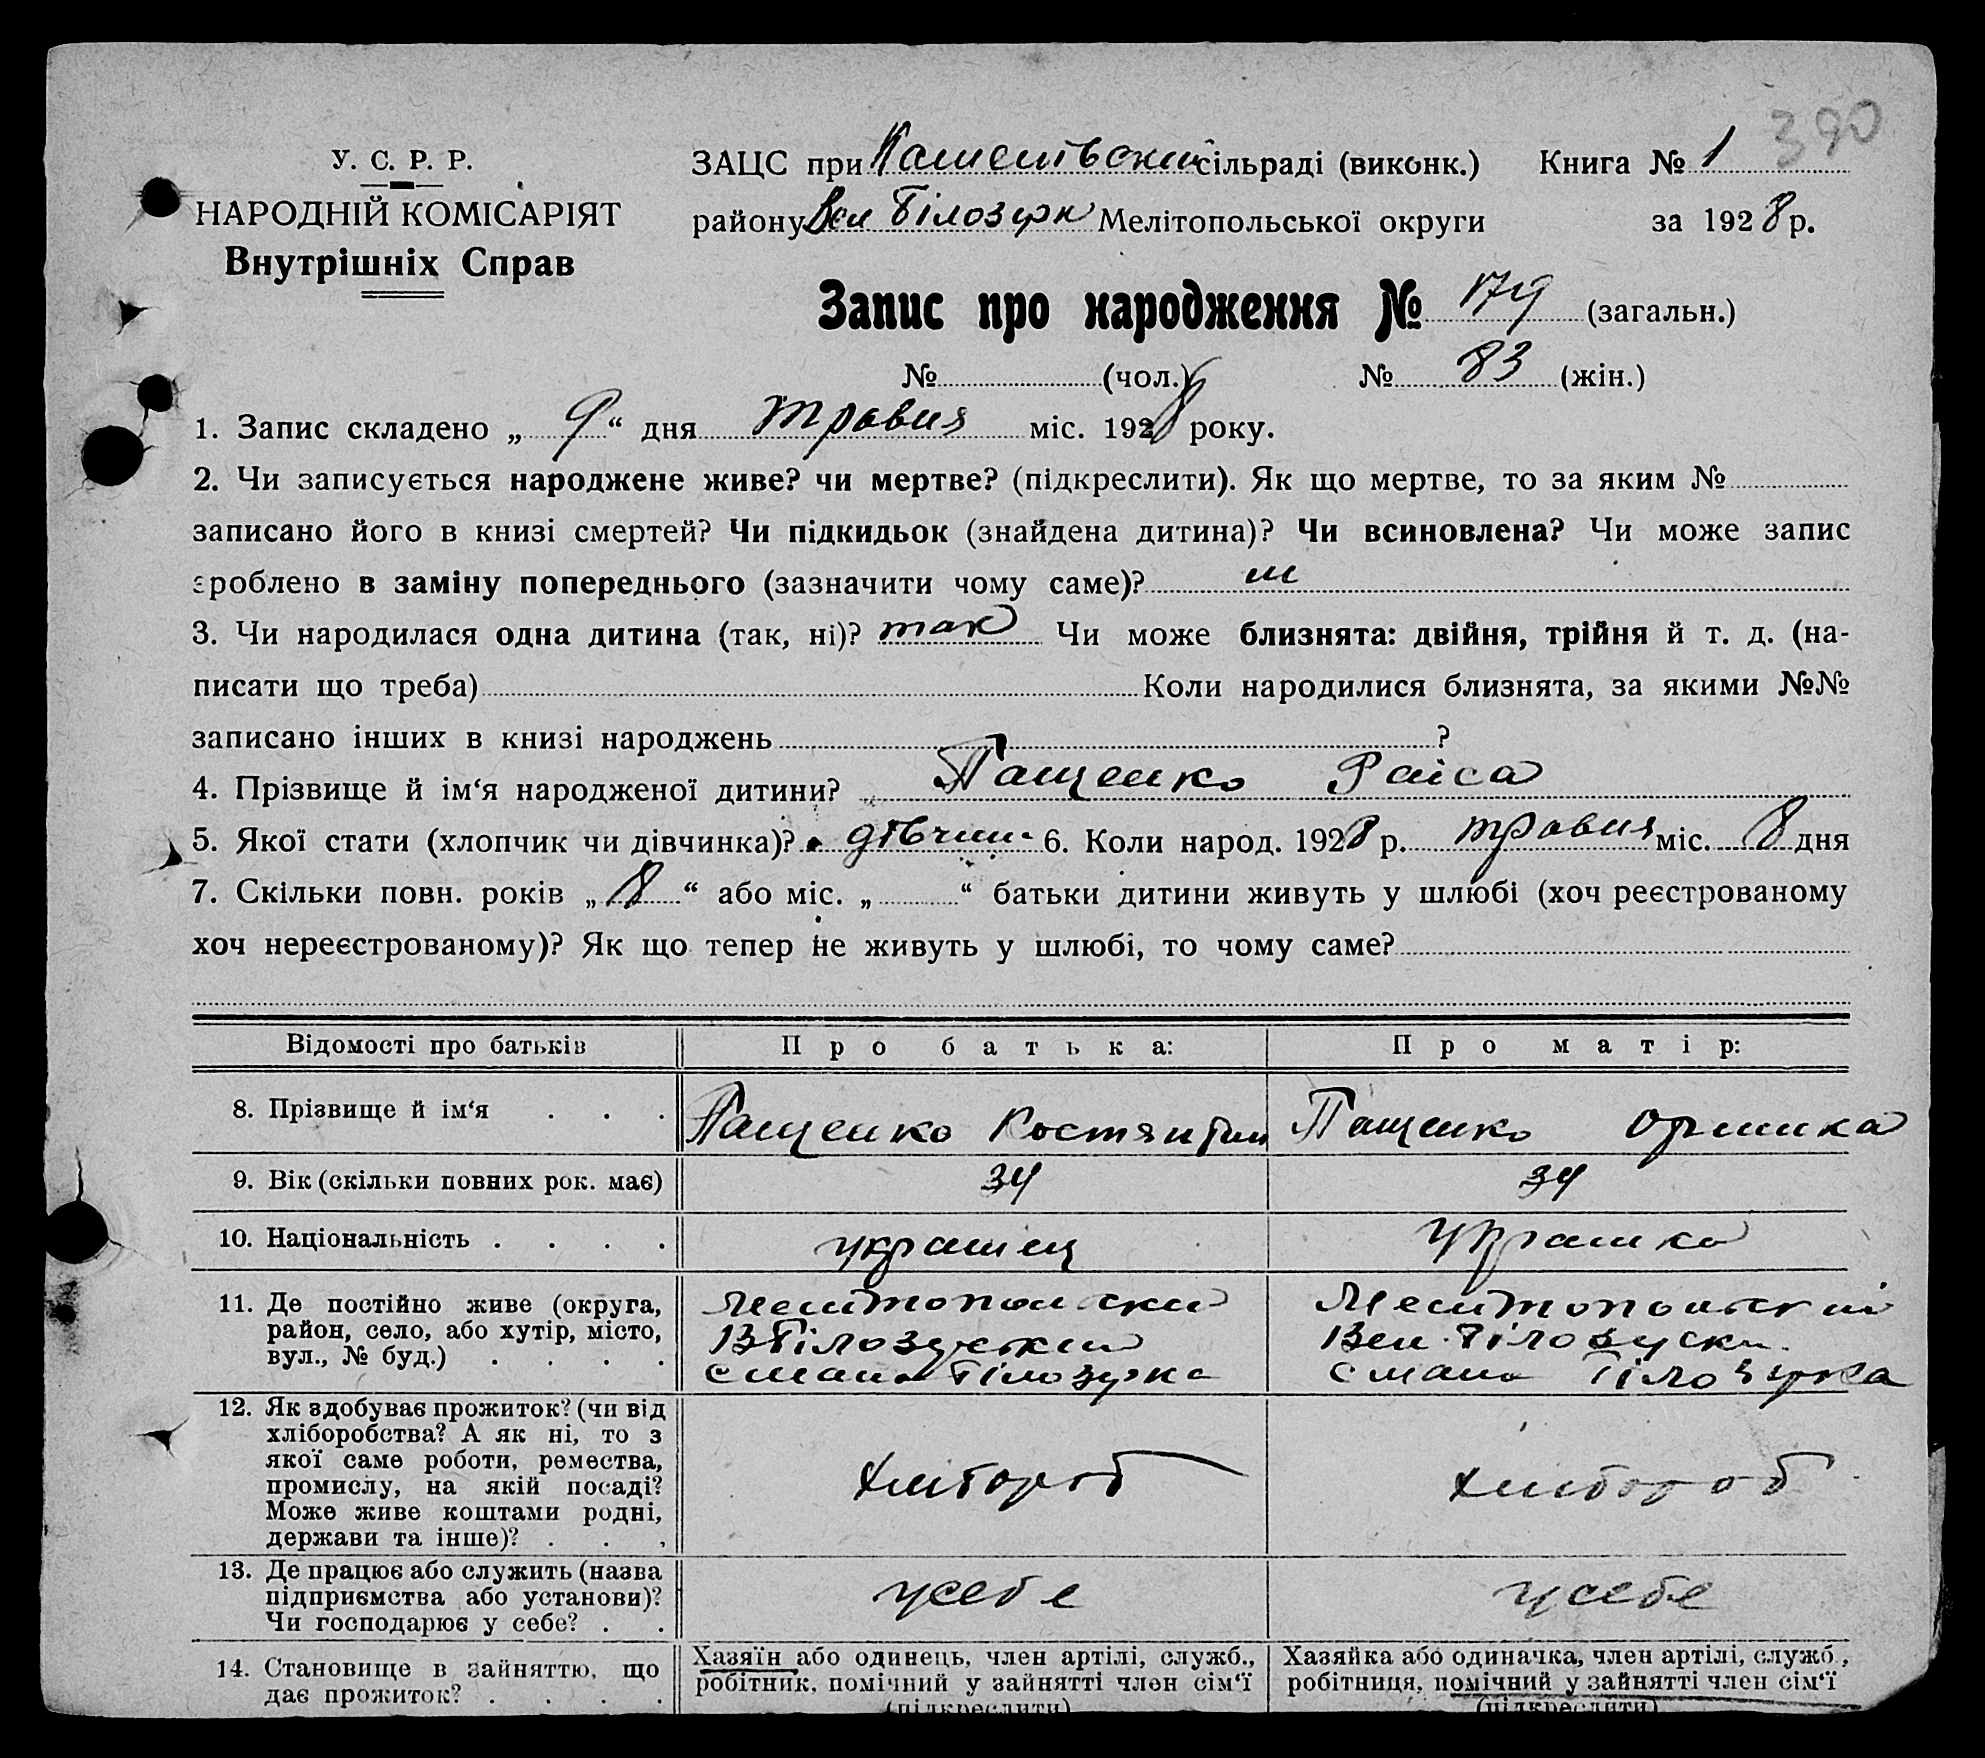 390
У. С. Р. Р.
НАРОДНІЙ КОМІСАРІЯТ
Внутрішніх Справ
ЗАЦС при сільраді (виконк.) Книга № 1
району Вел Білозірк Мелітопольської округи за 1928 р.
Запис про народження № 179 (загальн.)
№ (чол.) № 83 (жін.)
1. Запис складено „ 9 “ дня травня міс. 1928 року.
2. Чи записується народжене живе? чи мертве? (підкреслити). Як що мертве, то за яким №
записано його в книзі смертей? Чи підкидьок (знайдена дитина)? Чи всиновлена? Чи може запис
зроблено в заміну попереднього (зазначити чому саме)? ні
3. Чи народилася одна дитина (так, ні)? так Чи може близнята: двійня, трійня й т. д. (на-
писати що треба) Коли народилися близнята, за якими №№
записано інших в книзі народжень ?
4. Прізвище й ім‘я народженої дитини? Пащенко Раіса
5. Якої стати (хлопчик чи дівчинка)? дівчин. 6. Коли народ. 1928 р. травня міс. 8 дня
7. Скільки повн. років „ 8 “ або міс. „ “ батьки дитини живуть у шлюбі (хоч реєстрованому
хоч нереєстрованому)? Як що тепер не живуть у шлюбі, то чому саме?
Відомості про батьків Про батька: Про матір:
8. Прізвище й ім‘я . . . Пащенко Костянтин Пащенко Оришка
9. Вік (скільки повних рок. має) 34 34
10. Національність . . . . українец українка
11. Де постійно живе (округа,
район, село, або хутір, місто,
вул., № буд.) . . . .
Мелітопольски
В Білозірски
смала Білозірка
Мелітопольскі
Вел. Білозірски.
смала Білозірка
12. Як здобуває прожиток? (чи від
хліборобства? А як ні, то з
якої саме роботи, ремества,
промислу, на якій посаді?
Може живе коштами родні,
держави та інше)? . . .
хлібороб хлібороб
13. Де працює або служить (назва
підприємства або установи)?
Чи господарює у себе? . .
усебе усебе
14. Становище в зайняттю, що
дає прожиток? . . . .
Хазяїн або одинець, член артілі, служб.,
робітник, помічний у зайнятті член сім‘ї
(підкреслити)
Хазяйка або одиначка, член артілі, служб.,
робітниця, помічний у зайнятті член сім‘ї
(підкреслити)